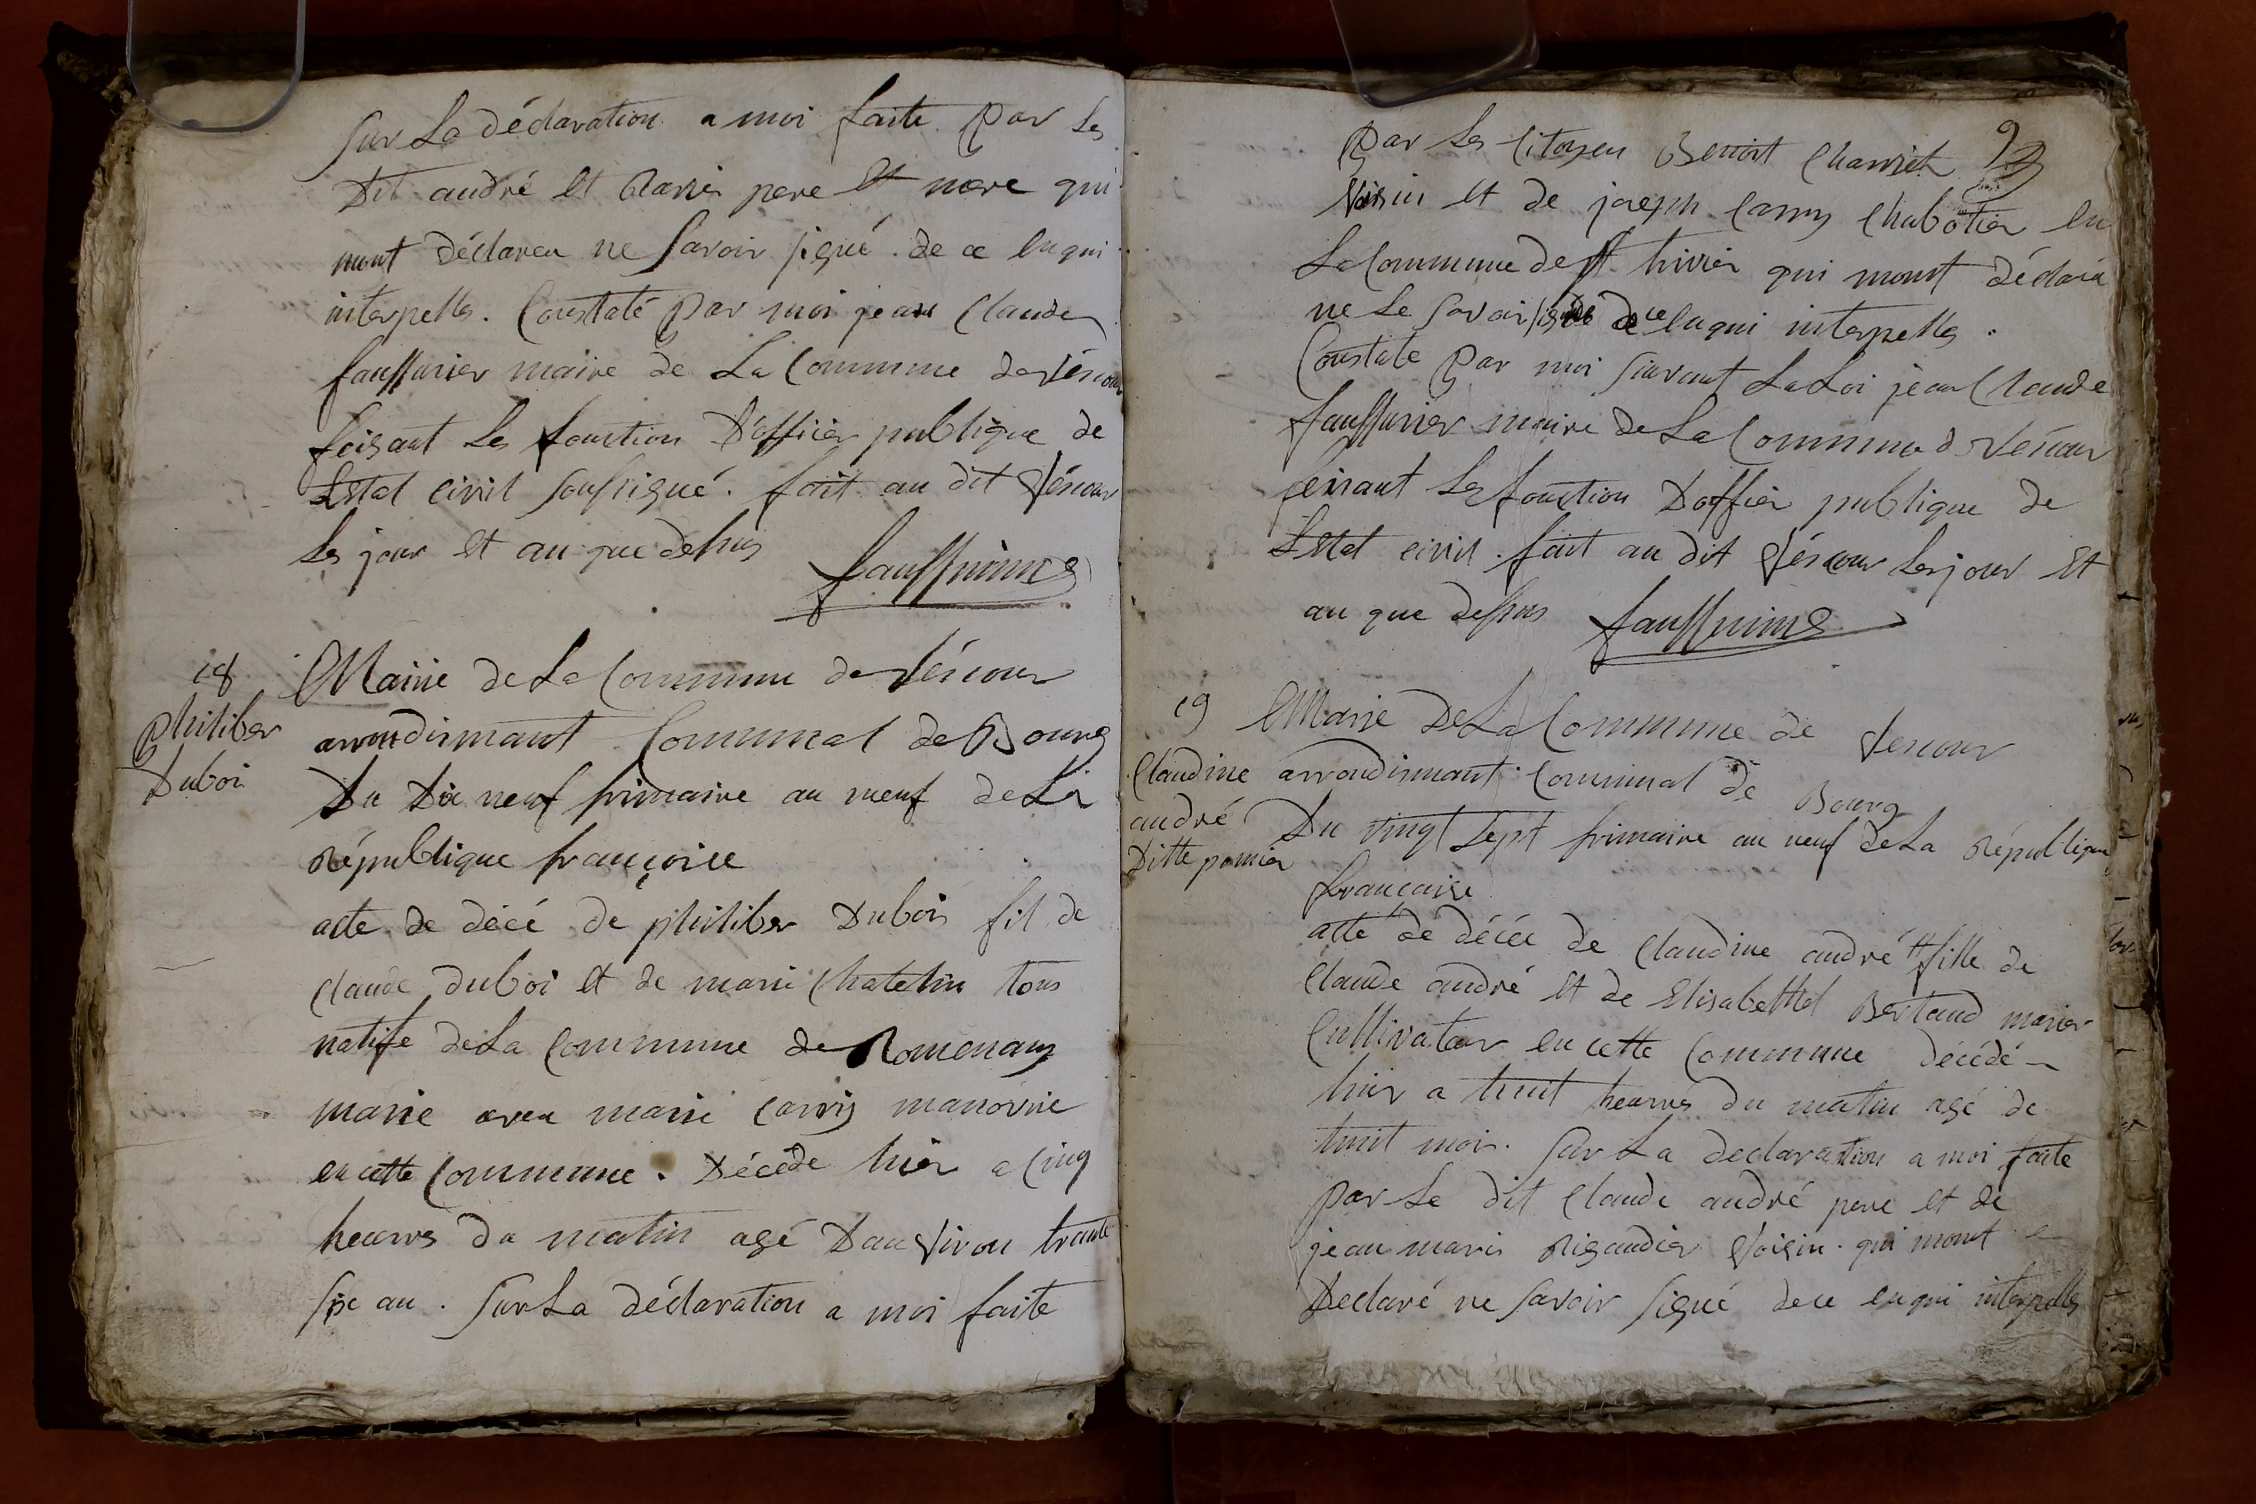 Sur La déclaration a moi faite par Les
Dit andré Et Marié pere Et mere qui
mont déclarea ne Savoir signé. de ce Enqui
interpelle. Constaté par moi jean Claude
faussurier maire de La Commune de Véscour
faisant Les fonction D'officiér publique de
L'Etat civil soussigné. fait au dit Véscour
Les jour Et an que dessus
18 Mairie de La Commune de Véscour
philiber arrondismant Communal de Bourg
Duboi Du Dix neuf frimaire an neuf de La
République françoise
acte de décé de philiber Duboi fil de
Claude duboi Et de marie Chatelin tous
natife de La Commune de Romenay
marie avec marie Carry manovrié
en cette Commune. Décéde hier a Cinq
heures du matin agé D'anviron trante
six an. Sur La déclaration a moi faite
9
par Les Citoyen Benoit Charvet
Voisin Et de joseph Carry Chabotier En
La Commune de St. trivier qui mont déclaré
ne Le Savoir signé de ce Enqui interpelle.
Constaté par moi suivant La Loi jean Claude
faussurier maire de La Commune de Véscour
feisant Les fonction D'officiér publique de
L'Etat civil. fait au dit Véscour Les jour Et
an que dessus
19 Mairie De La Commune de Vescour
Claudine arrondismant Communal de Bourg
andré Du vingt Sept frimaire an neuf de La République
Ditte pannier française
acte de décée de Claudine andré fille de
Claude andré Et de Elisabethet Bertaud marier
Cultivateur En cette Commune décédé
hier a huit heures du matin agé de
huit moi. Sur La declaration a moi faite
par Le dit Claude andré pere Et de
jean marie Rigaudier Voisin. qui mont
Declaré ne Savoir signé de ce Enqui interpelle